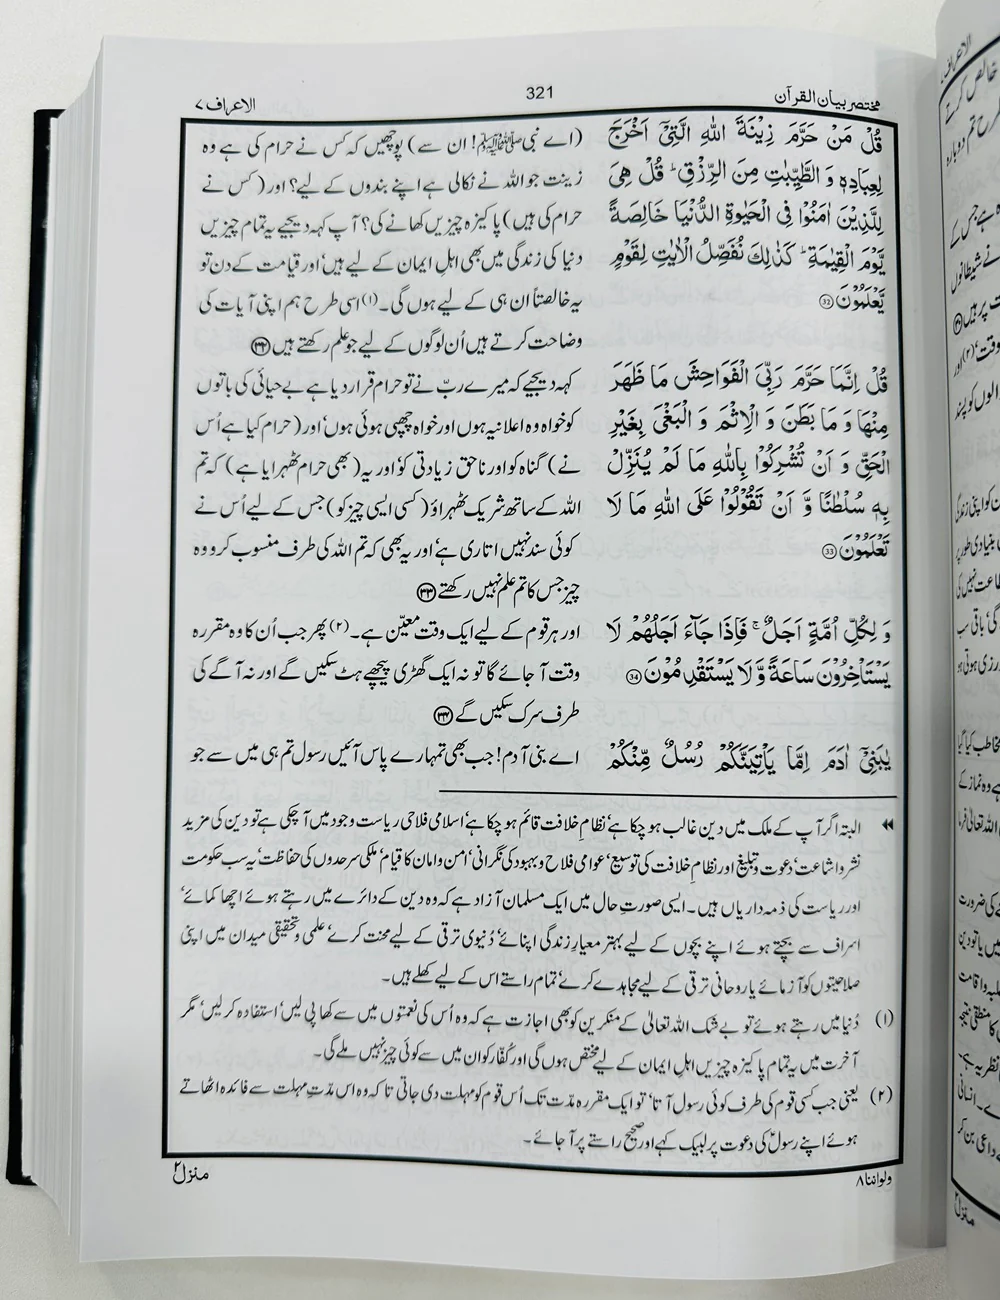 مختصر بیان القرآن
321
الاعراف ۷
قُلْ مَنْ حَرَّمَ زِيْنَةَ اللّٰهِ الَّتِيْٓ اَخْرَجَ
لِعِبَادِهٖ وَ الطَّيِّبٰتِ مِنَ الرِّزْقِ ؕ قُلْ هِيَ
لِلَّذِيْنَ اٰمَنُوْا فِي الْحَيٰوةِ الدُّنْيَا خَالِصَةً
يَّوْمَ الْقِيٰمَةِ ؕ كَذٰلِكَ نُفَصِّلُ الْاٰيٰتِ لِقَوْمٍ
يَّعْلَمُوْنَ ﴿32﴾
(اے نبی ﷺ! ان سے) پوچھیں کہ کس نے حرام کی ہے وہ
زینت جو اللہ نے نکالی ہے اپنے بندوں کے لیے؟ اور (کس نے
حرام کی ہیں) پاکیزہ چیزیں کھانے کی؟ آپ کہہ دیجیے یہ تمام چیزیں
دنیا کی زندگی میں بھی اہلِ ایمان کے لیے ہیں‘ اور قیامت کے دن تو
یہ خالصتاً ان ہی کے لیے ہوں گی۔(۱) اسی طرح ہم اپنی آیات کی
وضاحت کرتے ہیں اُن لوگوں کے لیے جو علم رکھتے ہیں ﴿۳۲﴾
قُلْ اِنَّمَا حَرَّمَ رَبِّيَ الْفَوَاحِشَ مَا ظَهَرَ
مِنْهَا وَ مَا بَطَنَ وَ الْاِثْمَ وَ الْبَغْيَ بِغَيْرِ
الْحَقِّ وَ اَنْ تُشْرِكُوْا بِاللّٰهِ مَا لَمْ يُنَزِّلْ
بِهٖ سُلْطٰنًا وَّ اَنْ تَقُوْلُوْا عَلَى اللّٰهِ مَا لَا
تَعْلَمُوْنَ ﴿33﴾
کہہ دیجیے کہ میرے ربّ نے تو حرام قرار دیا ہے بے حیائی کی باتوں
کو خواہ وہ اعلانیہ ہوں اور خواہ چھپی ہوئی ہوں‘ اور (حرام کیا ہے اُس
نے) گناہ کو اور ناحق زیادتی کو‘ اور یہ (بھی حرام ٹھہرایا ہے) کہ تم
اللہ کے ساتھ شریک ٹھہراؤ (کسی ایسی چیز کو) جس کے لیے اُس نے
کوئی سند نہیں اتاری ہے‘ اور یہ بھی کہ تم اللہ کی طرف منسوب کرو وہ
چیز جس کا تم علم نہیں رکھتے ﴿۳۳﴾
وَ لِكُلِّ اُمَّةٍ اَجَلٌ ۚ فَاِذَا جَآءَ اَجَلُهُمْ لَا
يَسْتَاْخِرُوْنَ سَاعَةً وَّ لَا يَسْتَقْدِمُوْنَ ﴿34﴾
اور ہر قوم کے لیے ایک وقت معیّن ہے۔(۲) پھر جب اُن کا وہ مقررہ
وقت آ جائے گا تو نہ ایک گھڑی پیچھے ہٹ سکیں گے اور نہ آگے کی
طرف سرک سکیں گے ﴿۳۴﴾
يٰبَنِيْٓ اٰدَمَ اِمَّا يَاْتِيَنَّكُمْ رُسُلٌ مِّنْكُمْ
اے بنی آدم! جب بھی تمہارے پاس آئیں رسول تم ہی میں سے جو
البتہ اگر آپ کے ملک میں دین غالب ہو چکا ہے‘ نظامِ خلافت قائم ہو چکا ہے‘ اسلامی فلاحی ریاست وجود میں آ چکی ہے تو دین کی مزید
نشر و اشاعت‘ دعوت و تبلیغ اور نظامِ خلافت کی توسیع‘ عوامی فلاح و بہبود کی نگرانی‘ امن و امان کا قیام‘ ملکی سرحدوں کی حفاظت‘ یہ سب حکومت
اور ریاست کی ذمہ داریاں ہیں۔ ایسی صورتِ حال میں ایک مسلمان آزاد ہے کہ وہ دین کے دائرے میں رہتے ہوئے اچھا کمائے‘
اسراف سے بچتے ہوئے اپنے بچوں کے لیے بہتر معیارِ زندگی اپنائے‘ دُنیوی ترقی کے لیے محنت کرے‘ علمی و تحقیقی میدان میں اپنی
صلاحیتوں کو آزمائے یا روحانی ترقی کے لیے مجاہدے کرے‘ تمام راستے اس کے لیے کھلے ہیں۔
(۱) دُنیا میں رہتے ہوئے تو بے شک اللہ تعالیٰ کے منکرین کو بھی اجازت ہے کہ وہ اُس کی نعمتوں میں سے کھا پی لیں‘ استفادہ کر لیں‘ مگر
آخرت میں یہ تمام پاکیزہ چیزیں اہلِ ایمان کے لیے مختص ہوں گی اور کُفّار کو ان میں سے کوئی چیز نہیں ملے گی۔
(۲) یعنی جب کسی قوم کی طرف کوئی رسول آتا‘ تو ایک مقررہ مدّت تک اُس قوم کو مہلت دی جاتی تاکہ وہ اس مدّتِ مہلت سے فائدہ اٹھاتے
ہوئے اپنے رسولؑ کی دعوت پر لبیک کہے اور صحیح راستے پر آ جائے۔
ولواننا ۸
منزل ۲